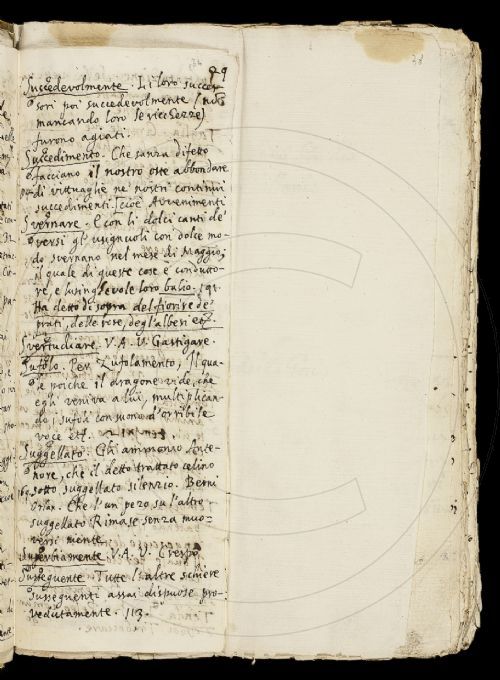 99
Succedevolmente. Li loro succes-
sori poi succedevolmente (non
mancando loro le ricchezze)
furono agiati.
Succedimento. Che sanza difetto
facciano il nostro oste abbondare
di vittuaglie ne' nostri continui
succedimenti. [cioè Avvenimenti
Svernare. E con li dolci canti de'
versi gl'usignuoli con dolce mo-
do svernano nel mese di Maggio,
il quale di queste cose è condutto-
re, e lusinghevole loro balio. 191.
Ha detto di sopra del fiorire de'
prati, delle rose, degl'alberi etc.
Svertudiare. V. A. V. Gastigare.
Sufolo. Per Zufolamento. Il qua-
le poiche il dragone vide, che
egli veniva a lui, multiplican-
do i sufoli con suono d'orribile
voce etc.
Suggellato. Gli ammonio Ante-
nore, che il detto trattato celino
sotto suggellato silenzio. Berni
Orlan. Che l'un pezo su l'altro
suggellato Rimase senza muo-
versi mente.
Superbiamente. V. A. V. Crespo
Susseguente. Tutte l'altre schiere
susseguenti assai dispuose pro-
vedutamente. 113.